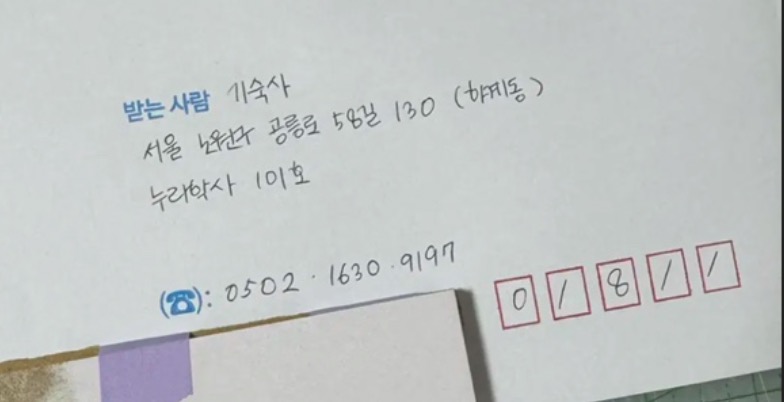 받는 사람 기숙사
서울 노원구 공릉로 58길 130 (하계동)
누라학사 101호
(☎): 0502 · 1630 · 9197
0 1 8 1 1